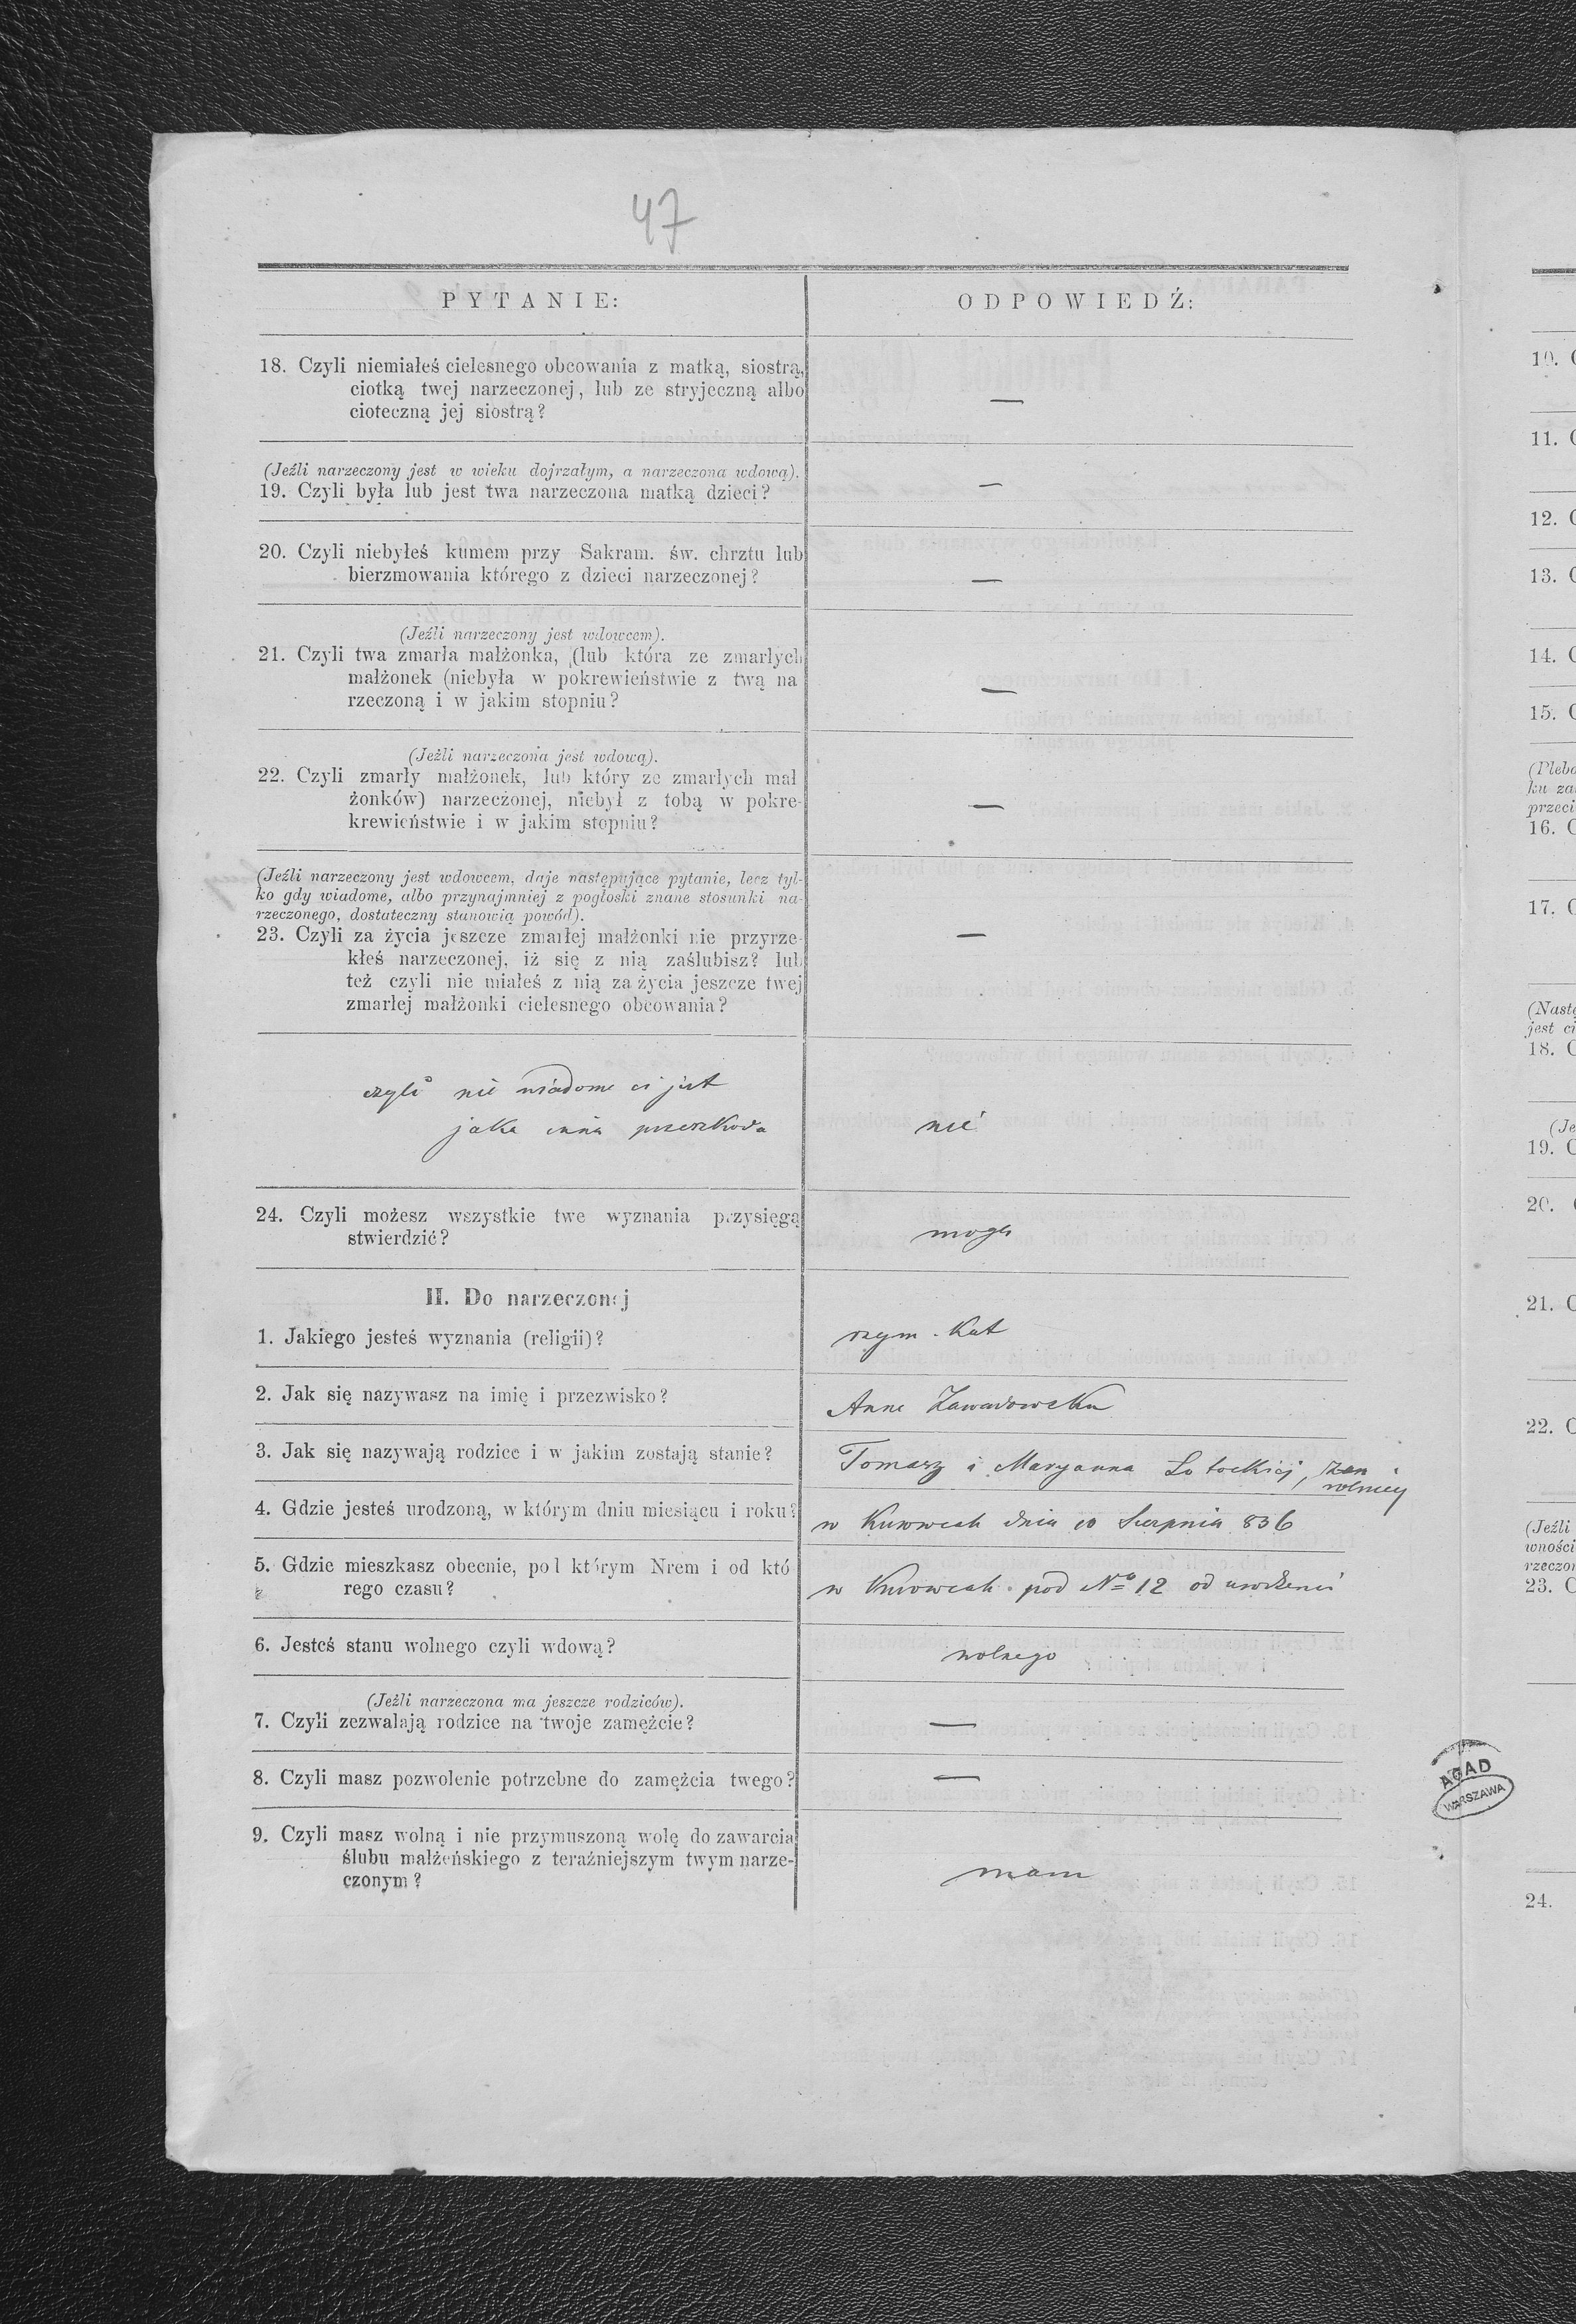 47
PYTANIE:
ODPOWIEDŹ:
18. Czyli niemiałeś cielesnego obcowania z matką, siostrą,
ciotką twej narzeczonej, lub ze stryjeczną albo
cioteczną jej siostrą?
—
(Jeźli narzeczony jest w wieku dojrzałym, a narzeczona wdową).
19. Czyli była lub jest twa narzeczona matką dzieci?
—
20. Czyli niebyłeś kumem przy Sakram. św. chrztu lub
bierzmowania którego z dzieci narzeczonej?
—
(Jeźli narzeczony jest wdowcem).
21. Czyli twa zmarła małżonka, (lub która ze zmarłych
małżonek (niebyła w pokrewieństwie z twą na
rzeczoną i w jakim stopniu?
—
(Jeżli narzeczona jest wdową).
22. Czyli zmarły małżonek, lub który ze zmarłych mał
żonków) narzeczonej, niebył z tobą w pokre-
krewieństwie i w jakim stopniu?
—
(Jeźli narzeczony jest wdowcem, daje następujące pytanie, lecz tyl-
ko gdy wiadome, albo przynajmniej z pogłoski znane stosunki na-
rzeczonego, dostateczny stanowią powód).
23. Czyli za życia jeszcze zmarłej małżonki nie przyrze-
kłeś narzeczonej, iż się z nią zaślubisz? lub
też czyli nie miałeś z nią za życia jeszcze twej
zmarłej małżonki cielesnego obcowania?
—
czyli nie wiadome ci jest
jaka inna przeszkoda
nie
24. Czyli możesz wszystkie twe wyznania przysięgą
stwierdzić?
mogę
II. Do narzeczonej
1. Jakiego jesteś wyznania (religii)?
rzym. Kat
2. Jak się nazywasz na imię i przezwisko?
Anna Zawadowska
3. Jak się nazywają rodzice i w jakim zostają stanie?
Tomasz i Maryanna
rolnicy
4. Gdzie jesteś urodzoną, w którym dniu miesiącu i roku?
w Kurowcach dnia 10 Sierpnia 836
5. Gdzie mieszkasz obecnie, pod którym Nrem i od któ
rego czasu?
w Kurowcach pod No 12 od urodzenia
6. Jesteś stanu wolnego czyli wdową?
wolnego
(Jeżli narzeczona ma jeszcze rodziców).
7. Czyli zezwalają rodzice na twoje zamężcie?
—
8. Czyli masz pozwolenie potrzebne do zamężcia twego?
—
9. Czyli masz wolną i nie przymuszoną wolę do zawarcia
ślubu małżeńskiego z teraźniejszym twym narze-
czonym?
mam
AGAD
WARSZAWA
10. C
11. C
12. C
13. C
14. C
15. C
(Pleba
ku za
przeci
16. C
17. C
(Nastę
jest ci
18. C
(Je
19. C
20.
21. C
22. C
(Jeźli
wności
rzeczon
23. C
24.